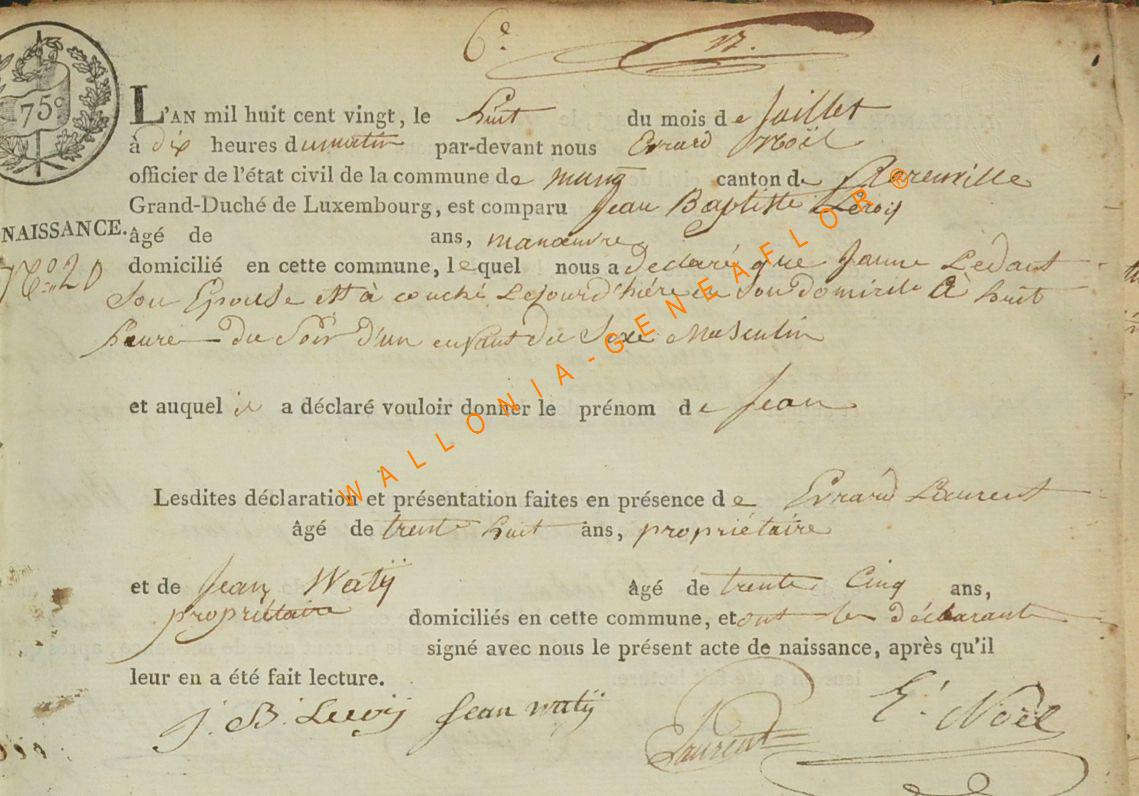 6e. 12.
75 c
L'AN mil huit cent vingt, le huit du mois de Juillet
à dix heures du matin par-devant nous Evrard Noël
officier de l'état civil de la commune de canton de
Grand-Duché de Luxembourg, est comparu Jean Baptiste Leroy
NAISSANCE.
âgé de ans, manœuvre
N.o 20
domicilié en cette commune, lequel nous a déclaré que Janne Ledant
Son Epouse est à couché Lejourd'hiére en Son domicile à huit
heure du Soir d'un enfant du Sexe Masculin
et auquel il a déclaré vouloir donner le prénom de Jean
Lesdites déclaration et présentation faites en présence de Evrard Laurent
âgé de trente huit ans, propriétaire
et de Jean Watÿ âgé de trente Cinq ans,
propriétaire domiciliés en cette commune, et ont les déclarant
signé avec nous le présent acte de naissance, après qu'il
leur en a été fait lecture.
J. B. Leroÿ Jean Watÿ Laurent E. Noël
WALLONIA-GENEAFLOR ®